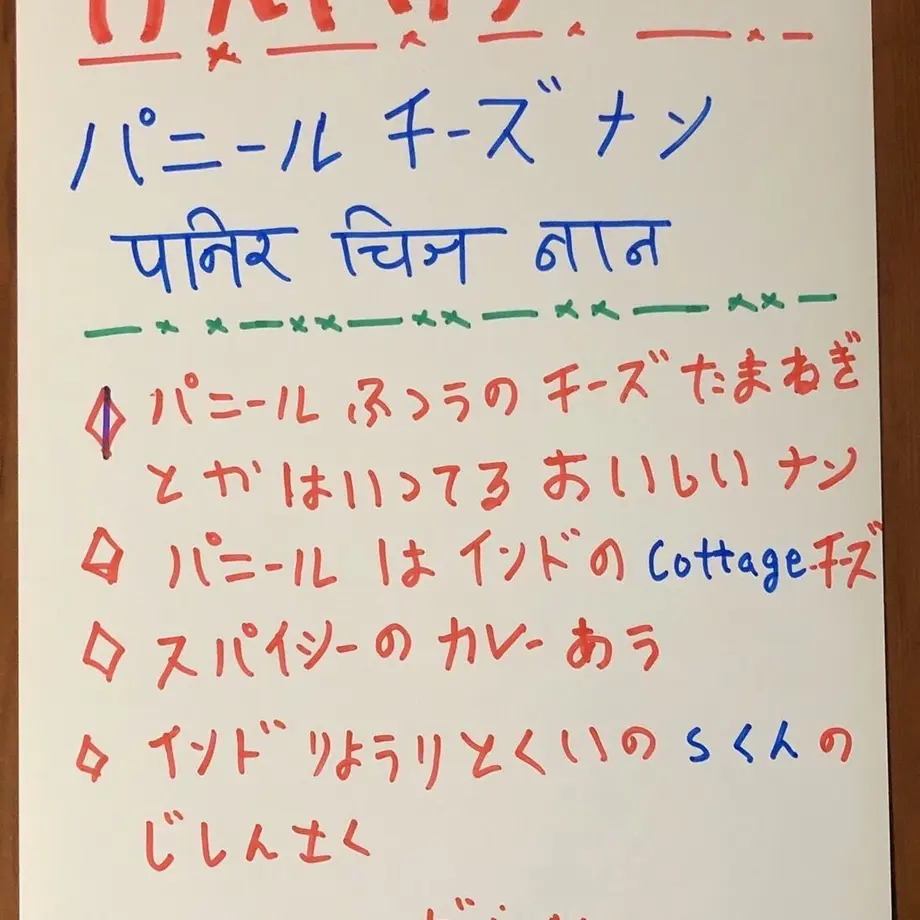 パニール チーズ ナン
पनिर चिज नान
パニール ふつうの チーズ たまねぎ
とか はいってる おいしい ナン
パニール は インドの Cottage チーズ
スパイシーの カレー あう
インド りようり とくいの Sくんの
じしんさく